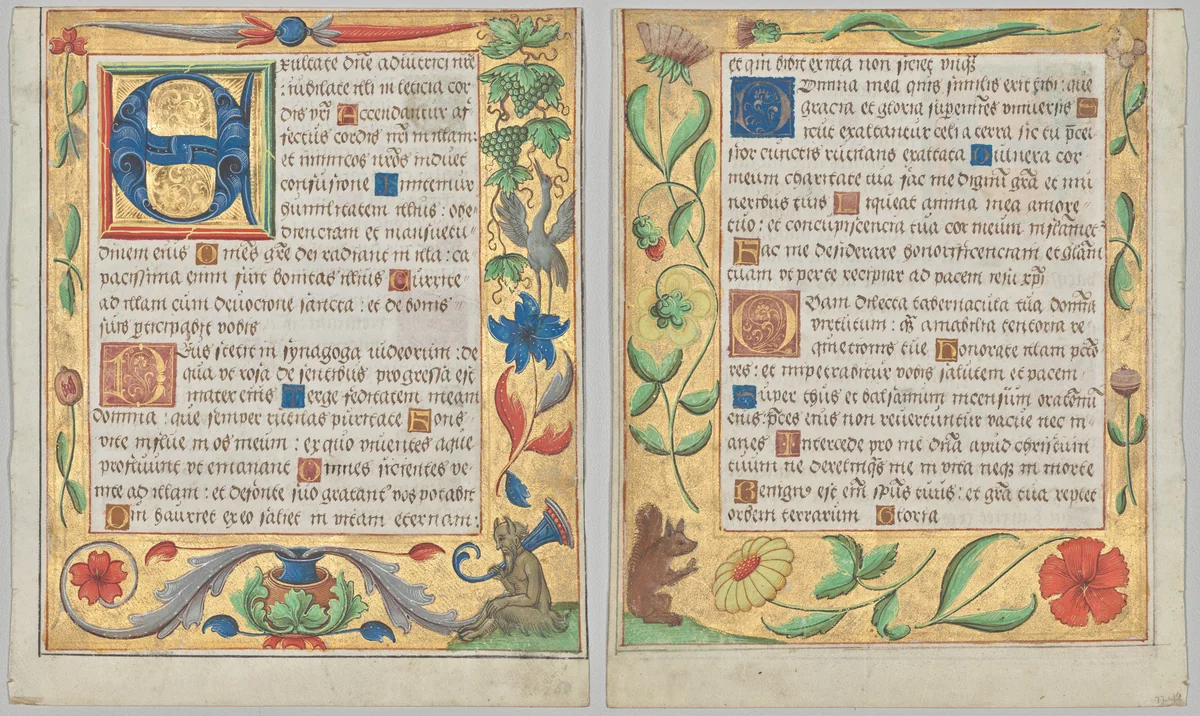 Exultate dn̄e adiutrici nr̄e
: iubilate illi in leticia cor
dis vr̄i Accendantur af
fectus cordis mr̄i in illam:
et inimicos vr̄os induet
confusione Imitemur
humilitatem illius : obe-
dienciam et mansuetu-
dinem eius Om̄es gr̄e dei radiant in illa : ca
pacissima enim fuit bonitas illius Currite
ad illam cum deuocione sancta : et de bonis
suis
Deus stetit in synagoga iudeorum : de
qua vt rosa
progressa est
mater eius Terge feditatem meam
domina : que semper rutilas puritate Fons
vite influe in os meum : ex quo viuentes aque
profluunt vt emanant Omnes sicientes ve-
nite ad illam : et de fonte suo gratant̉ vos potabit
Qui hauriet ex eo saliet in vitam eternam :
et qui bibit ex illa non siciet
Domina mea quis similis erit tibi : que
gracia et gloria superemines vniuersis S
icut exaltantur celi a terra sic tu p̄cel
sior cunctis rutilans exaltata Vulnera cor
meum charitate tua fac me dignum gr̄a et mu
neribus tuis Liqueat anima mea amore
tuo : et concupiscencia tua cor meum
Fac me desiderare honorificenciam et glām
tuam vt per te recipiar ad pacem iesu xp̄i
Quam dilecta tabernacula tua domina
virtutum : q̄ amabilia tentoria re
quietionis tue Honorate illam pctō
res : et impetrabitur vobis salutem et pacem
Super thus et balsamum incensum
eius p̄ces eius non reuertuntur vacue nec in-
anes Intercede pro me dn̄a apud christum
tuum ne derelinq̄s me in vita neq̄ in morte
Benign̉ est em̄ sp̄us tuus : et grā tua replet
orbem terrarum Gloria